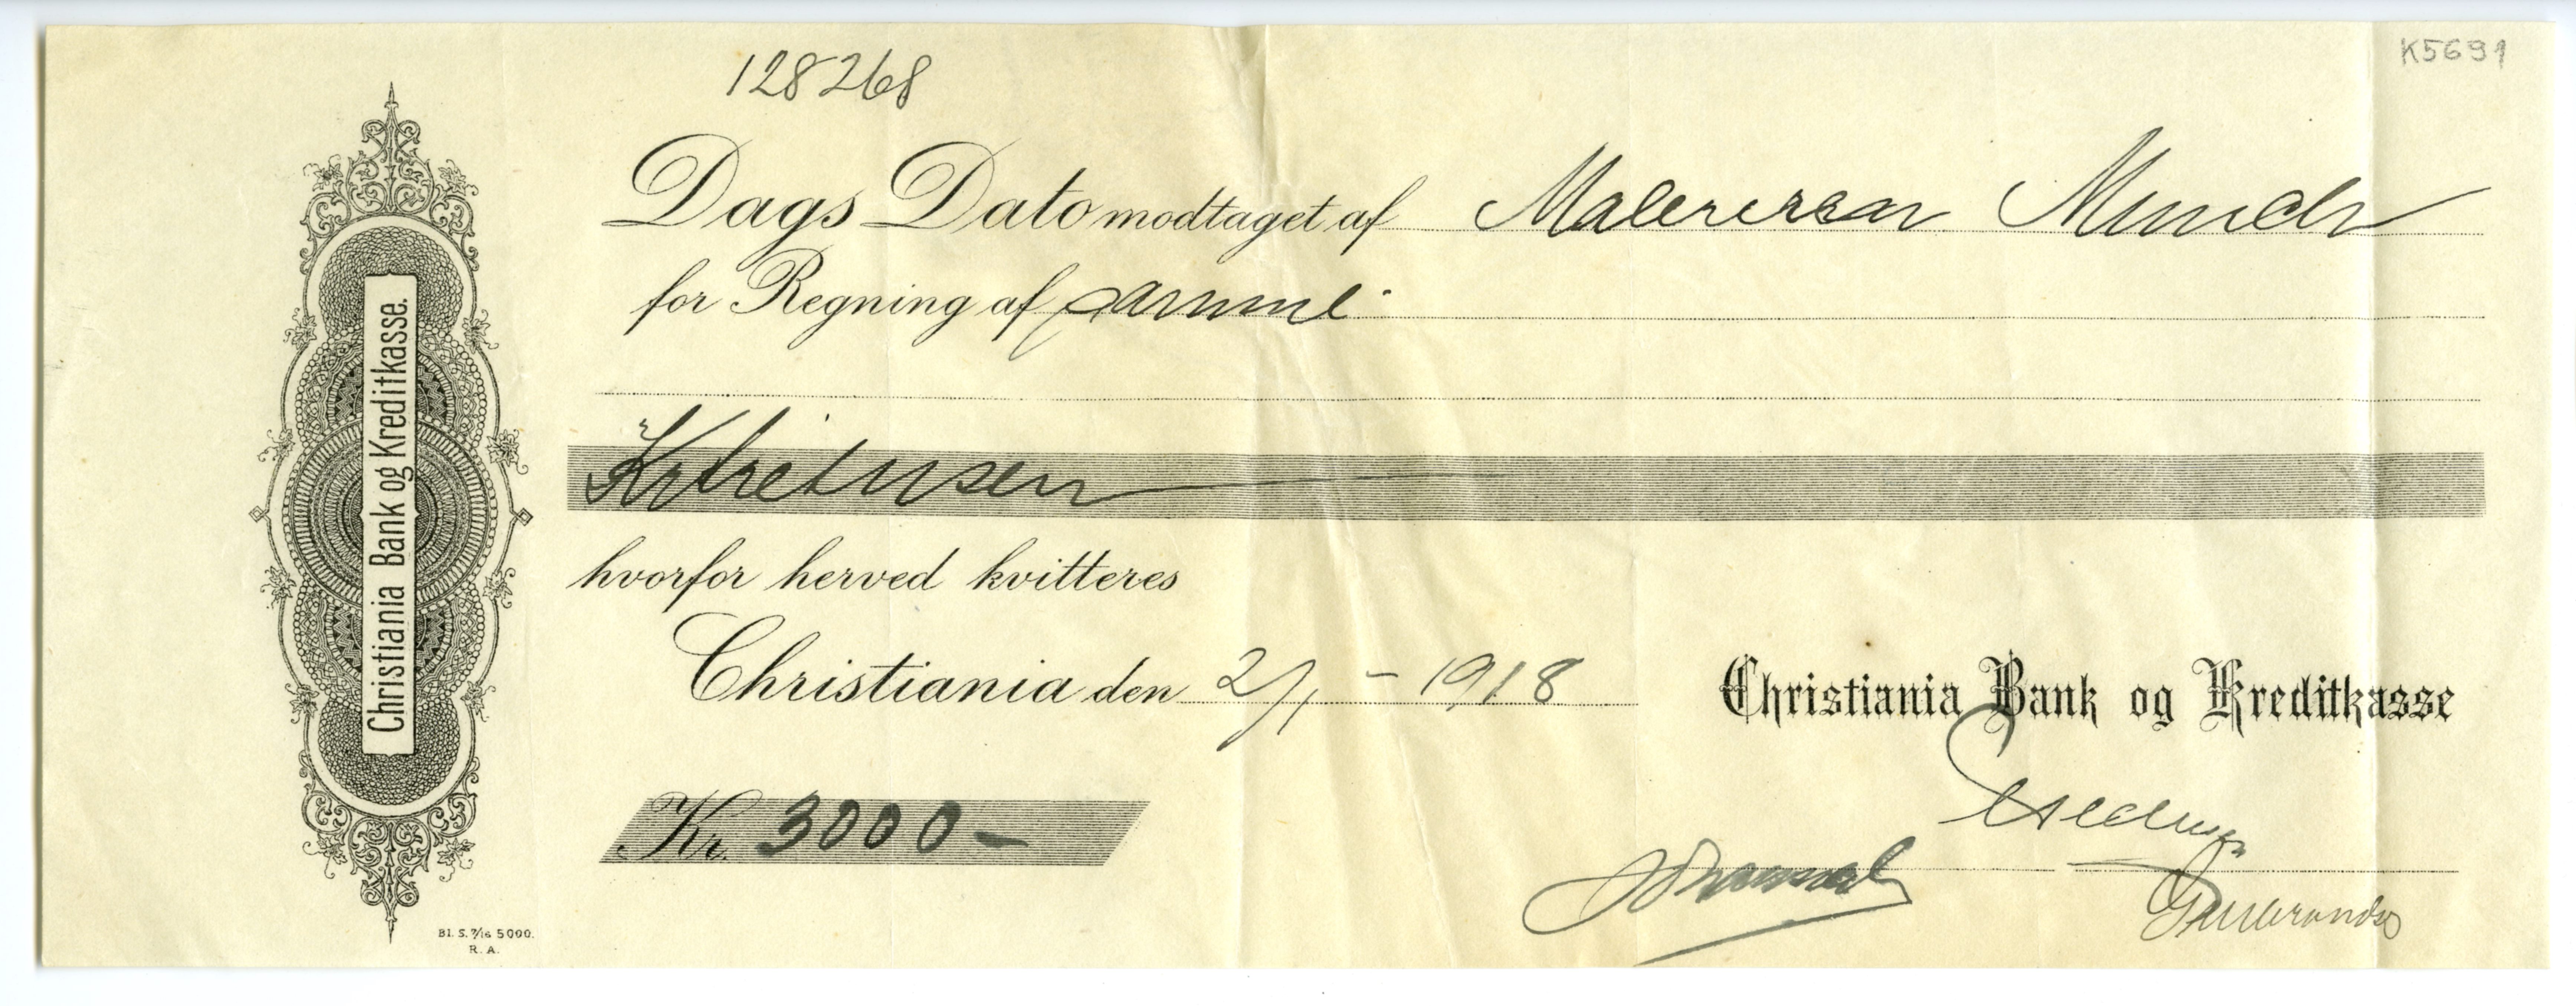 K5691
128268
Dags Dato modtaget af Maleren Munch
for Regning af samme
Kr tretusen
hvorfor herved kvitteres
Christiania den 2/1 - 1918
Christiania Bank og Kreditkasse
Kr. 3000 -
Christiania Bank og Kreditkasse.
Bl. S. 7/16 5000.
R. A.